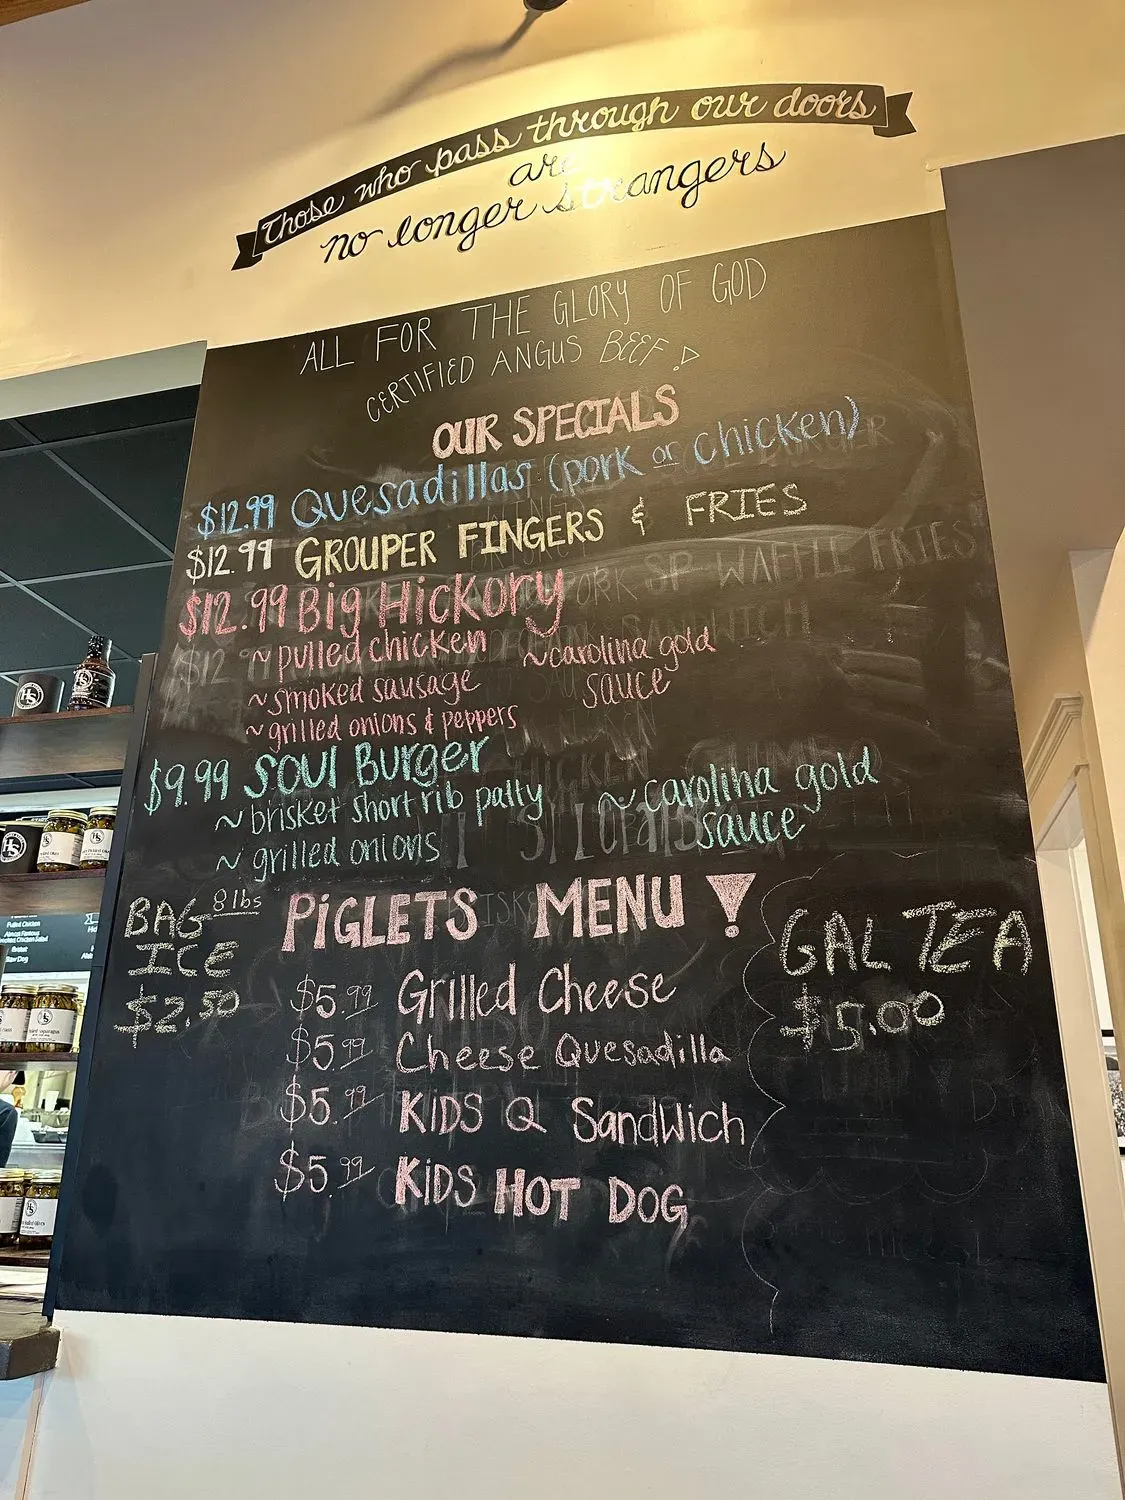 Those who pass through our doors
are
no longer strangers
ALL FOR THE GLORY OF GOD
CERTIFIED ANGUS BEEF!
OUR SPECIALS
$12.99 Quesadillas (pork or chicken)
$12.99 GROUPER FINGERS & FRIES
$12.99 Big Hickory
~pulled chicken ~carolina gold
~smoked sausage sauce
~grilled onions & peppers
$9.99 SOUL BURGER
~brisket short rib patty ~ carolina gold
~ grilled onions sauce
BAG 8 lbs
ICE
$2.50
PiGLETS MENU!
GAL TEA
$5.00
$5.99 Grilled Cheese
$5.99 Cheese Quesadilla
$5.99 KIDS Q Sandwich
$5.99 KiDS HOT DOG